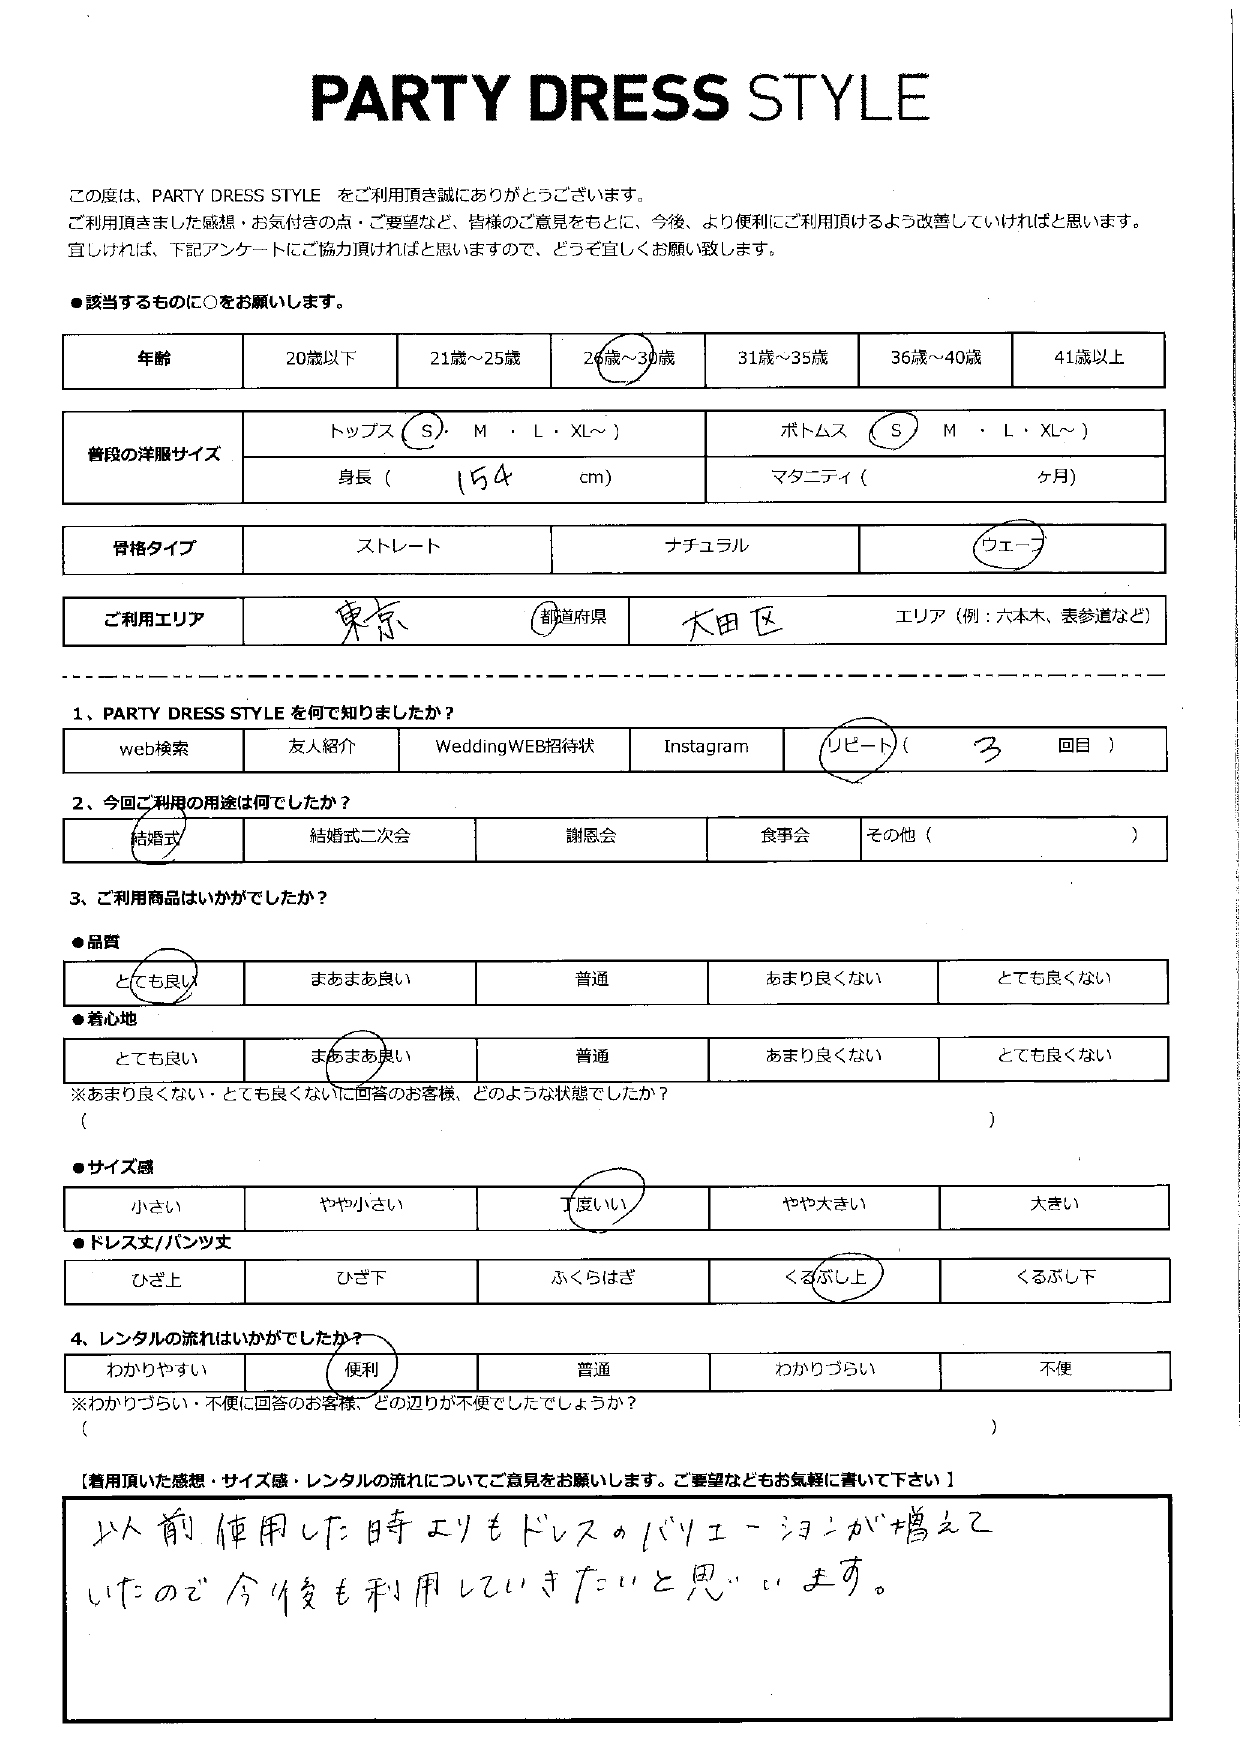 PARTY DRESS STYLE
この度は、PARTY DRESS STYLE をご利用頂き誠にありがとうございます。
ご利用頂きました感想・お気付きの点・ご要望など、皆様のご意見をもとに、今後、より便利にご利用頂けるよう改善していければと思います。
宜しければ、下記アンケートにご協力頂ければと思いますので、どうぞ宜しくお願い致します。
●該当するものに○をお願いします。
年齢 20歳以下 21歳～25歳 26歳～30歳 31歳～35歳 36歳～40歳 41歳以上
普段の洋服サイズ トップス ( S ・ M ・ L ・ XL～ ) ボトムス ( S M ・ L ・ XL～ )
身長 ( 154 cm) マタニティ ( ヶ月)
骨格タイプ ストレート ナチュラル ウェーブ
ご利用エリア 東京 都道府県 大田区 エリア（例：六本木、表参道など）
1、PARTY DRESS STYLE を何で知りましたか？
web検索 友人紹介 WeddingWEB招待状 Instagram リピート ( 3 回目 )
2、今回ご利用の用途は何でしたか？
結婚式 結婚式二次会 謝恩会 食事会 その他 ( )
3、ご利用商品はいかがでしたか？
●品質
とても良い まあまあ良い 普通 あまり良くない とても良くない
●着心地
とても良い まあまあ良い 普通 あまり良くない とても良くない
※あまり良くない・とても良くないに回答のお客様、どのような状態でしたか？
( )
●サイズ感
小さい やや小さい 丁度いい やや大きい 大きい
●ドレス丈/パンツ丈
ひざ上 ひざ下 ふくらはぎ くるぶし上 くるぶし下
4、レンタルの流れはいかがでしたか？
わかりやすい 便利 普通 わかりづらい 不便
※わかりづらい・不便に回答のお客様、どの辺りが不便でしたでしょうか？
( )
【着用頂いた感想・サイズ感・レンタルの流れについてご意見をお願いします。ご要望などもお気軽に書いて下さい】
以前使用した時よりもドレスのバリエーションが増えて
いたので今後も利用していきたいと思います。